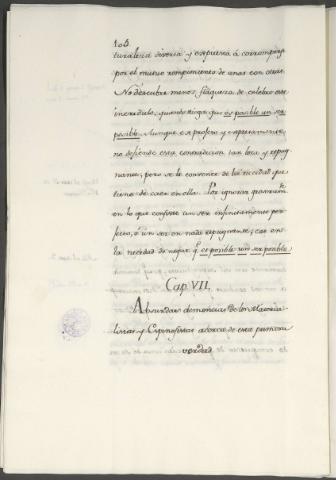 108
turaleza diversa y expuesta á corromperse
por el mutuo rompimiento de unas con otras.
No descubre menos flaqueza de celebro este
incredulo, quando niega que es posible un ser
posible. Aunque ex profeso y expresamente
no defiende esta contradicion tan loca y repug
nante, pero se le convence de la necedad que
tiene de caer en ella. Por ignorar
en lo que consiste un ser infinitamente per
fecto, ó un ser en nada repugnante; cae en
la necedad de negar q. es posible un ser posible.
Cap. VII.
Absurdas demencias de los Materia
listas y Espinosistas acerca de esta primera
verdad.